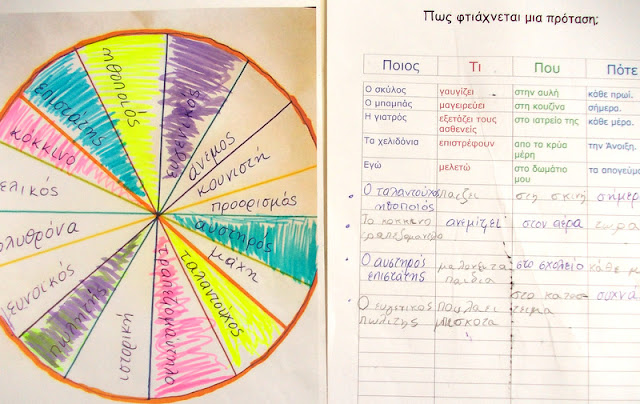 Πως φτιάχνεται μια πρόταση;
Ποιος Τι Που Πότε
Ο σκύλος γαυγίζει στην αυλή κάθε πρωί.
Ο μπαμπάς μαγειρεύει στη κουζίνα σήμερα.
Η γιατρός εξετάζει τους ασθενείς στο ιατρείο της κάθε μέρα.
Τα χελιδόνια επιστρέφουν απο τα κρύα μέρη την Άνοιξη.
Εγώ μελετώ στο δωμάτιο μου τα απογεύμα
Ο ταλαντούχος ηθοποιός παίζει στη σκηνή σήμερ
Το κόκκινο τραπεζομάντηλο ανεμίζει στον αέρα τώρα
Ο αυστηρός επιστάτης στο σχολείο κάθε
Ο ευγενικός πωλητής πουλάει συχνά
ηθοποιός
ευγενικός
άνεμος
κουνιστή
προορισμός
αυστηρός
μάχη
ταλαντούχος
τραπεζομάντηλο
ιστορική
πωλητής
ευνοικός
ολυθρόνα
ελικός
κόκκινο
επιστάτης